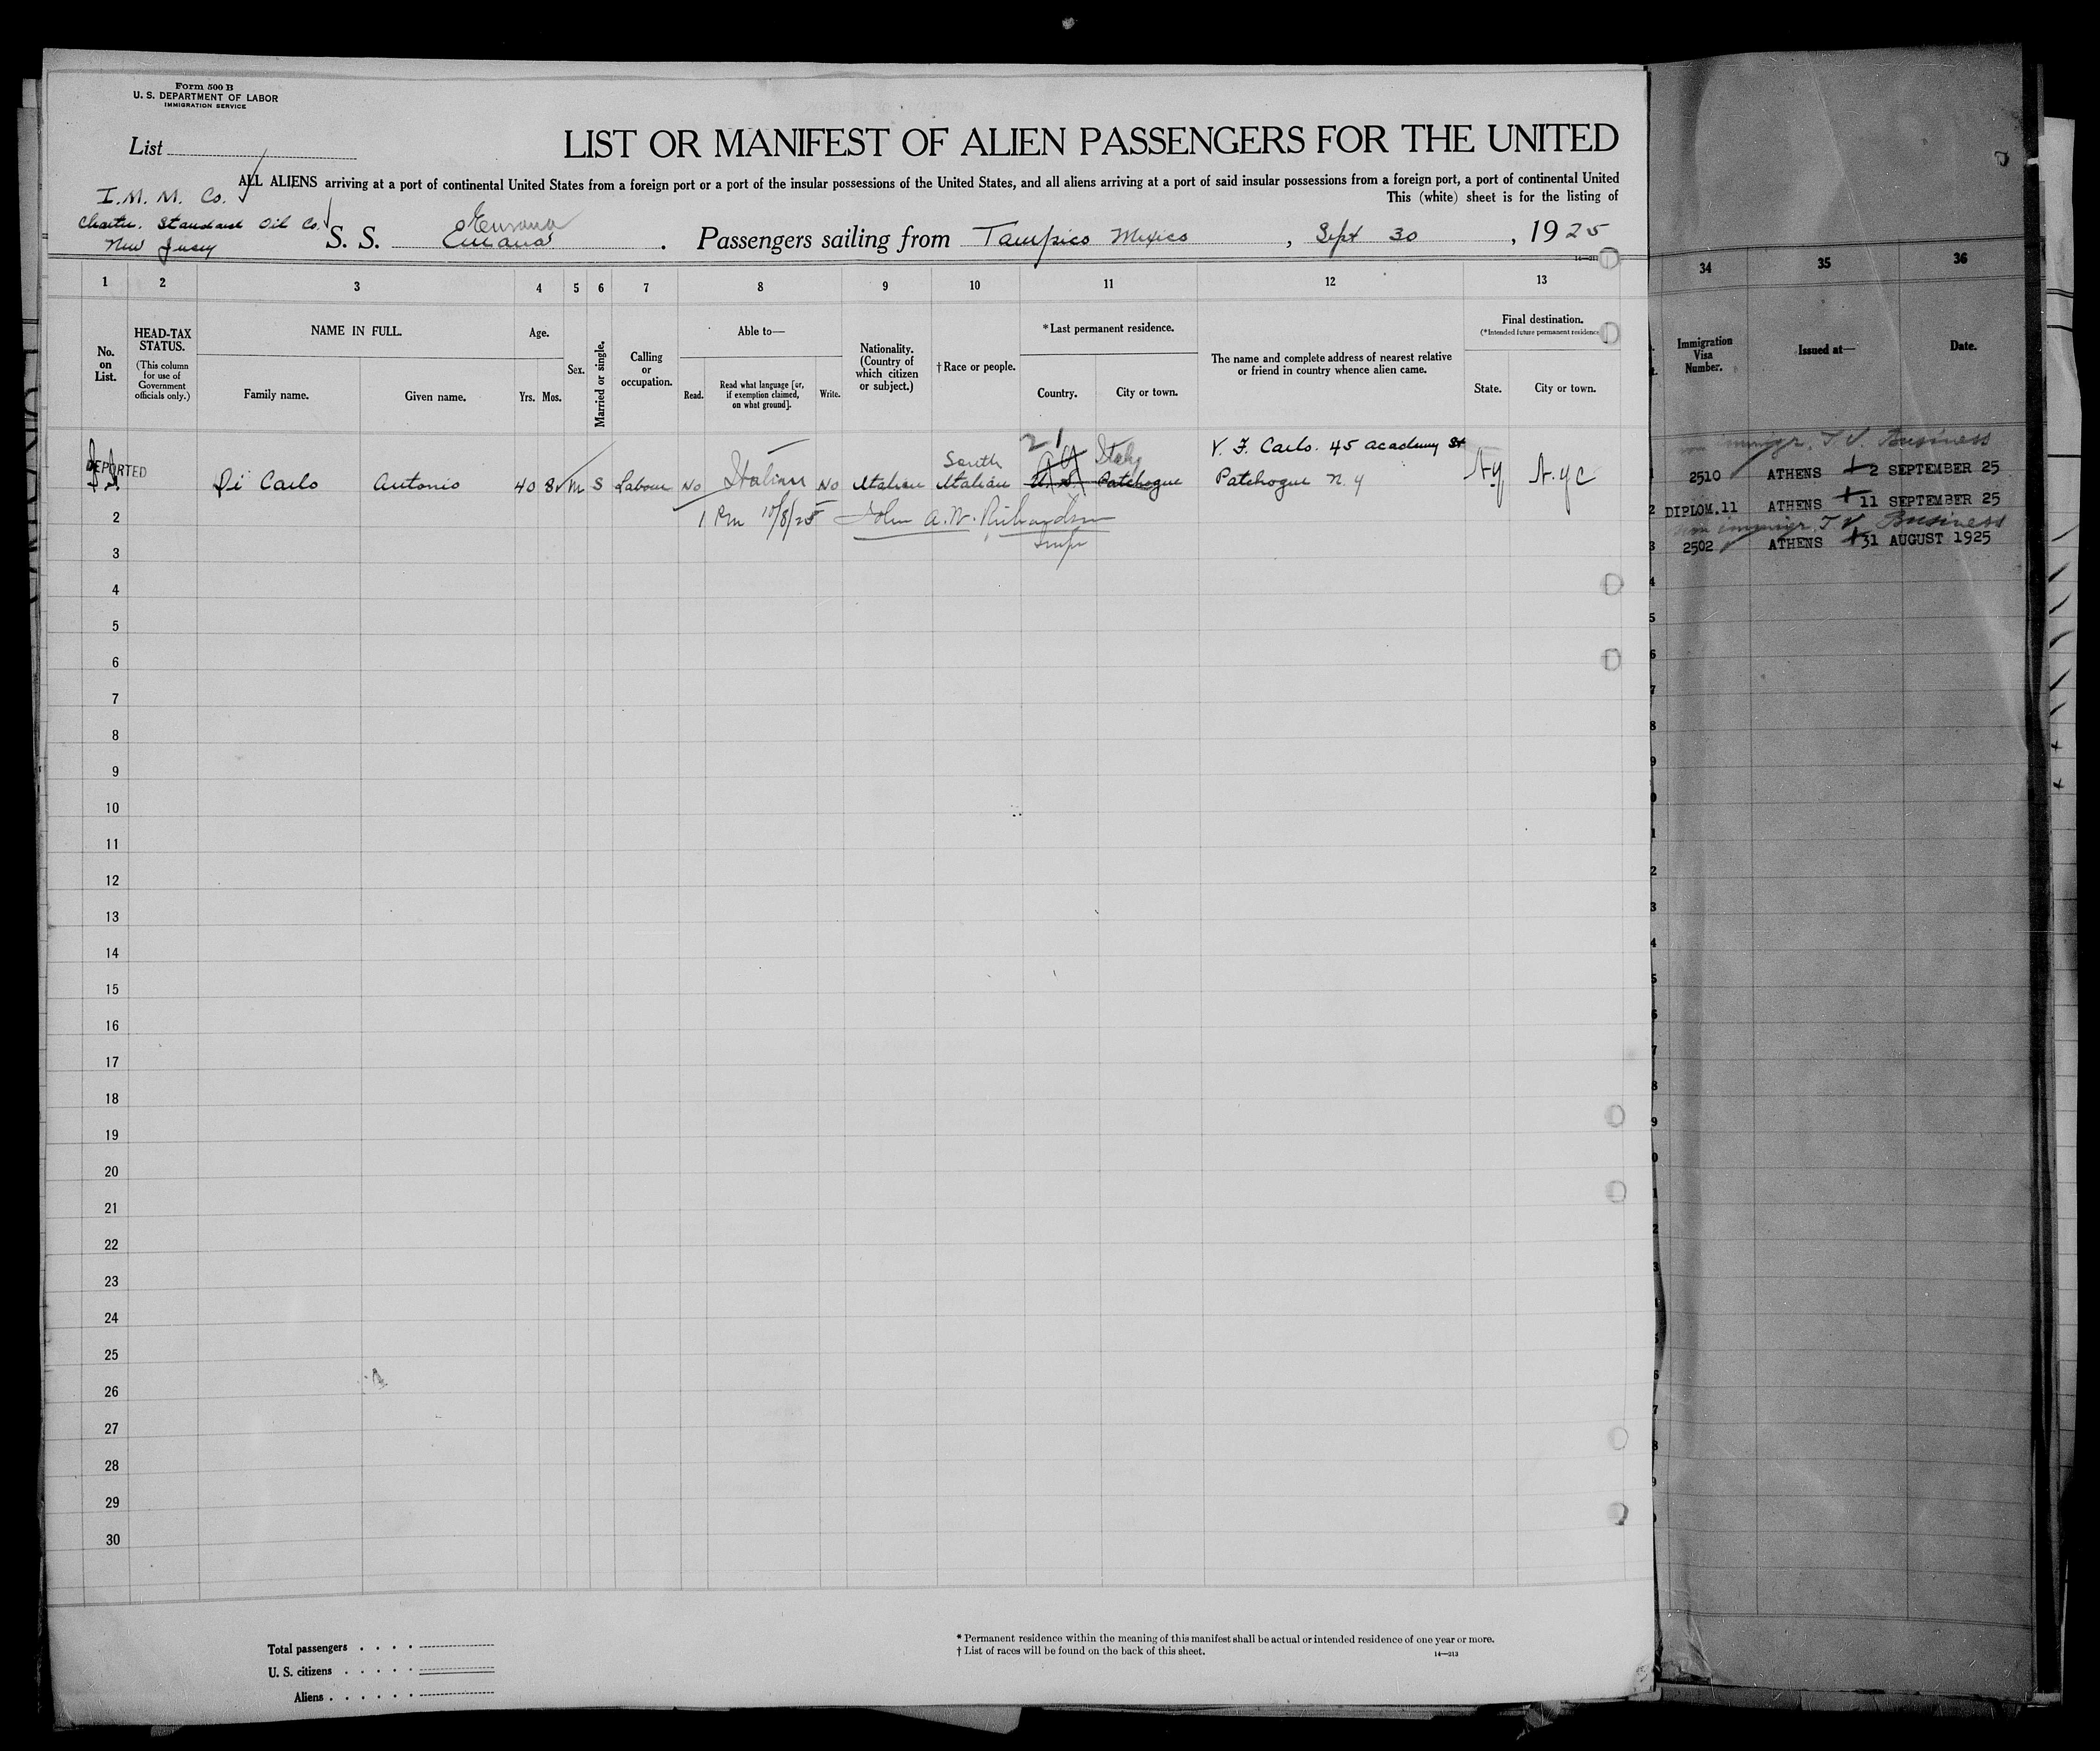 Form 500 B
U. S. DEPARTMENT OF LABOR
IMMIGRATION SERVICE
List
LIST OR MANIFEST OF ALIEN PASSENGERS FOR THE UNITED
ALL ALIENS arriving at a port of continental United States from a foreign port or a port of the insular possessions of the United States, and all aliens arriving at a port of said insular possessions from a foreign port, a port of continental United
This (white) sheet is for the listing of
I. M. M. Co.
Charter. Standard Oil Co.
New Jersey
S. S.
Passengers sailing from Tampico Mexico , Sept 30 , 1925
14—213
1 2 3 4 5 6 7 8 9 10 11 12 13
No. on List.
HEAD-TAX STATUS.
(This column for use of Government officials only.)
NAME IN FULL.
Family name.
Given name.
Age.
Yrs. Mos.
Sex.
Married or single.
Calling or occupation.
Able to—
Read.
Read what language [or, if exemption claimed, on what ground].
Write.
Nationality. (Country of which citizen or subject.)
† Race or people.
* Last permanent residence.
Country.
City or town.
The name and complete address of nearest relative or friend in country whence alien came.
Final destination.
(* Intended future permanent residence
State.
City or town.
34 35 36
Immigration Visa Number.
Issued at—
Date.
21
V. F. Carlo. 45 Academy St
DEPORTED
South Italy
Di Carlo Antonio 40 8 M S Labour No Italian No Italian Italian U. S. Patchogue Patchogue N. Y NY N.Y.C
1 Pm 10/8/25 John A. W. Richardson
Insp
2
3
4
5
6
7
8
9
10
11
12
13
14
15
16
17
18
19
20
21
22
23
24
25
26
27
28
29
30
non immigr. T V. Business
2510 ATHENS 2 SEPTEMBER 25
DIPLOM.11 ATHENS 11 SEPTEMBER 25
non immigr. T V Business
2502 ATHENS 31 AUGUST 1925
Total passengers
U. S. citizens
Aliens
* Permanent residence within the meaning of this manifest shall be actual or intended residence of one year or more.
† List of races will be found on the back of this sheet.
14—213